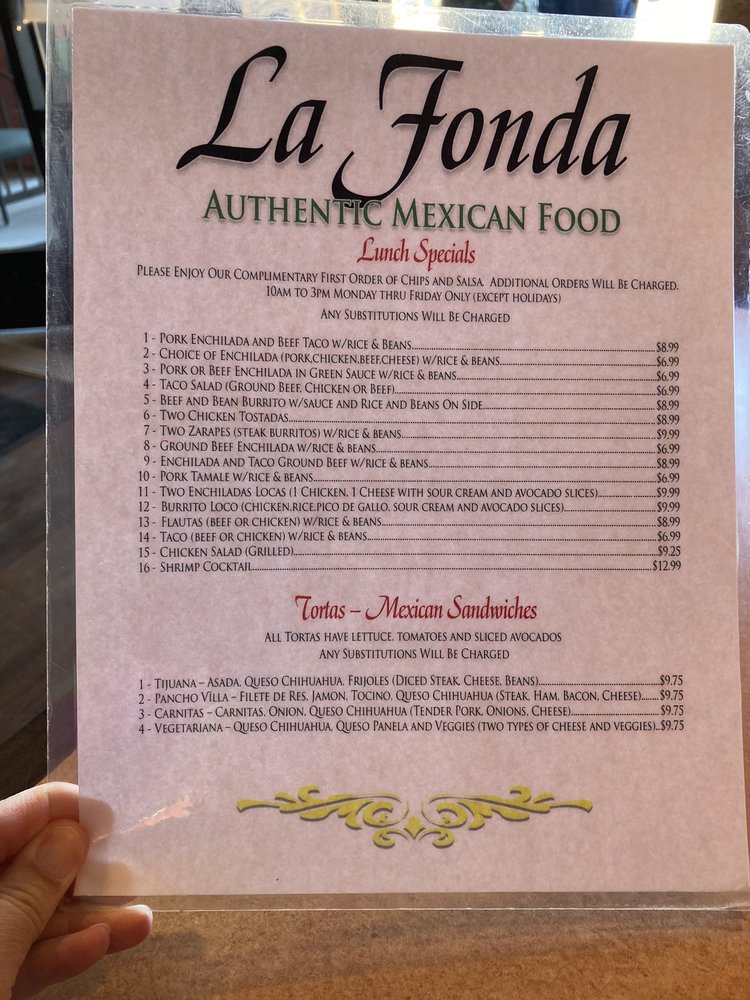 La Fonda
Authentic Mexican Food
Lunch Specials
Please Enjoy Our Complimentary First Order of Chips and Salsa. Additional Orders Will Be Charged.
10am to 3pm Monday thru Friday Only (except holidays)
Any Substitutions Will Be Charged
1 - Pork Enchilada and Beef Taco w/rice & beans $8.99
2 - Choice of Enchilada (pork,chicken,beef,cheese) w/rice & beans $6.99
3 - Pork or Beef Enchilada in Green Sauce w/rice & beans $6.99
4 - Taco Salad (Ground Beef, Chicken or Beef) $6.99
5 - Beef and Bean Burrito w/sauce and Rice and Beans On Side $8.99
6 - Two Chicken Tostadas $8.99
7 - Two Zarapes (steak burritos) w/rice & beans $9.99
8 - Ground Beef Enchilada w/rice & beans $6.99
9 - Enchilada and Taco Ground Beef w/rice & beans $8.99
10 - Pork Tamale w/rice & beans $6.99
11 - Two Enchiladas Locas (1 Chicken, 1 Cheese with sour cream and avocado slices) $9.99
12 - Burrito Loco (chicken,rice,pico de gallo, sour cream and avocado slices) $9.99
13 - Flautas (beef or chicken) w/rice & beans $8.99
14 - Taco (beef or chicken) w/rice & beans $6.99
15 - Chicken Salad (Grilled) $9.25
16 - Shrimp Cocktail $12.99
Tortas – Mexican Sandwiches
All Tortas have lettuce, tomatoes and sliced avocados
Any Substitutions Will Be Charged
1 - Tijuana – Asada, Queso Chihuahua, Frijoles (Diced Steak, Cheese, Beans) $9.75
2 - Pancho Vĭlla – Filete de Res, Jamon, Tocino, Queso Chihuahua (Steak, Ham, Bacon, Cheese) $9.75
3 - Carnitas – Carnitas, Onion, Queso Chihuahua (Tender Pork, Onions, Cheese) $9.75
4 - Vegetariana – Queso Chihuahua, Queso Panela and Veggies (two types of cheese and veggies) $9.75